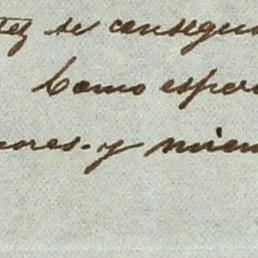 se consegui
Como espe
ores. y mien